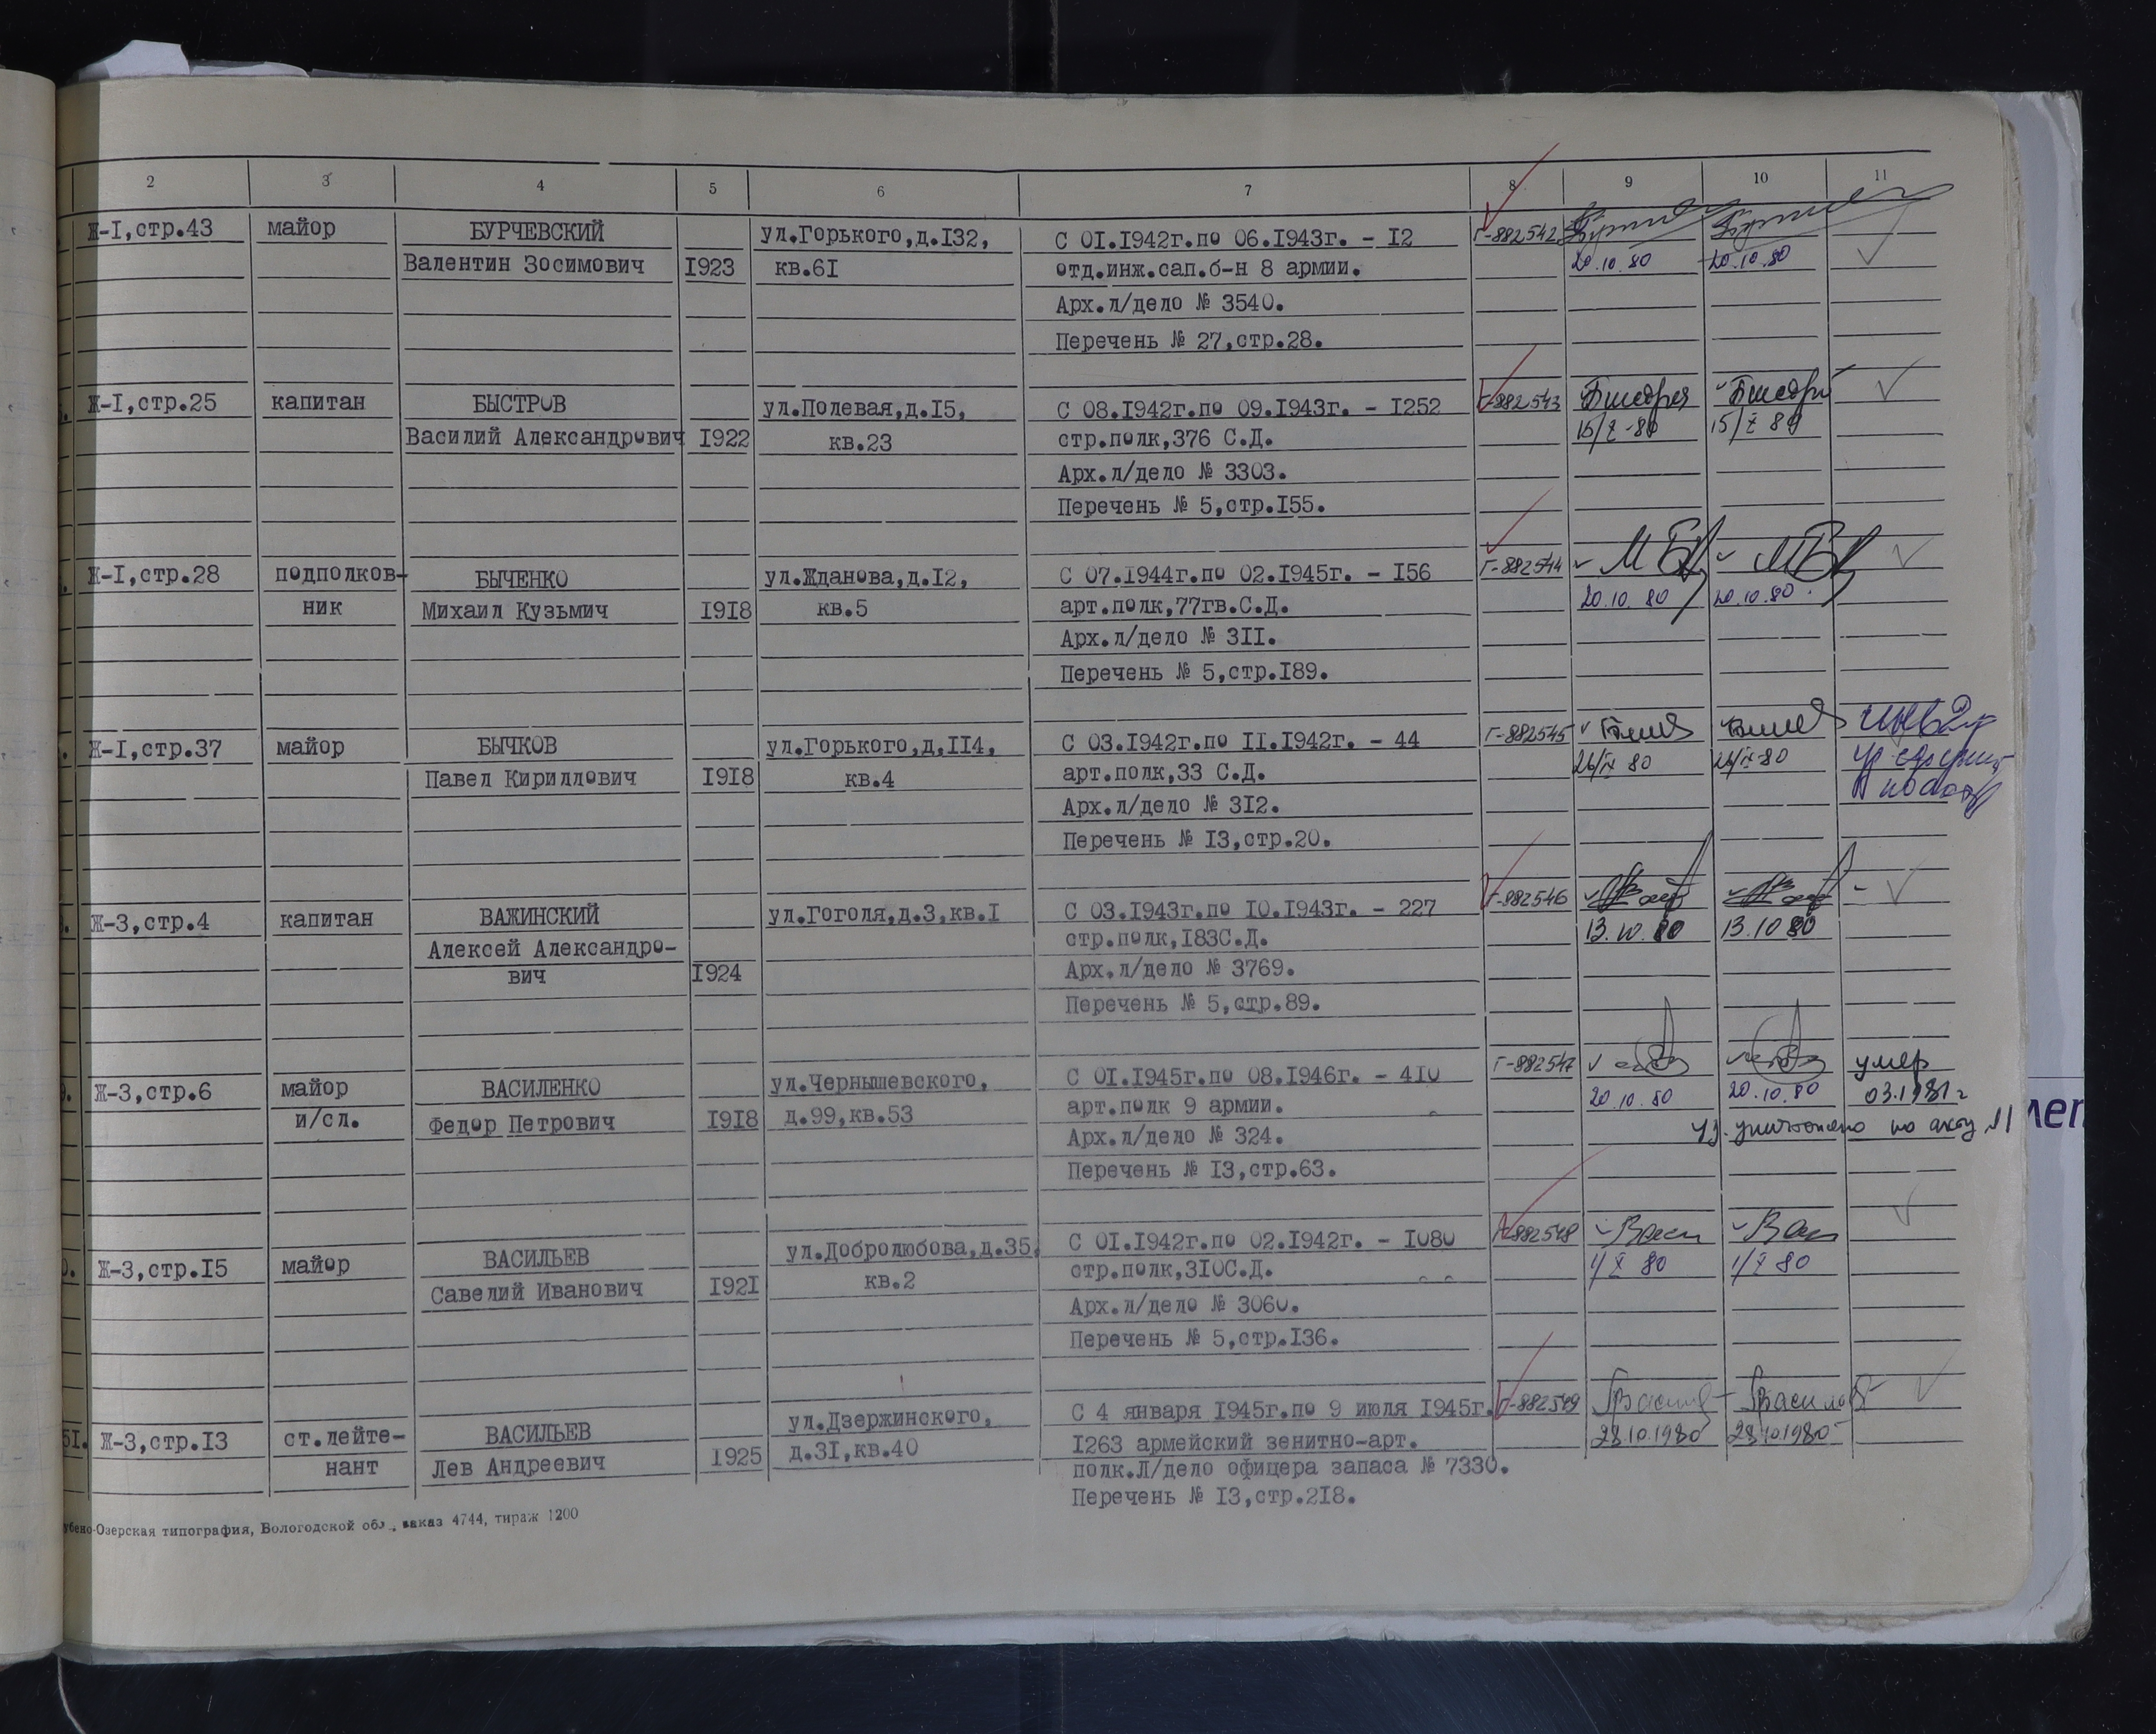 2 3 4 5 6 7 8 9 10 11
Ж-I,стр.43 майор БУРЧЕВСКИЙ ул.Горького,д.I32, С 0I.I942г.по 06.I943г. - I2 Г-882542
Валентин Зосимович I923 кв.6I отд.инж.сап.б-н 8 армии. 20.10.80 20.10.80
Арх.л/дело № 3540.
Перечень № 27,стр.28.
Ж-I,стр.25 капитан БЫСТРОВ ул.Полевая,д.I5, С 08.I942г.по 09.I943г. - I252 Г-882543
Василий Александрович I922 кв.23 стр.полк,376 С.Д. 15/X-80 15/X 80
Арх.л/дело № 3303.
Перечень № 5,стр.I55.
Ж-I,стр.28 подполков- БЫЧЕНКО ул.Жданова,д.I2, С 07.I944г.по 02.I945г. - I56 Г-882544
ник Михаил Кузьмич I9I8 кв.5 арт.полк,77гв.С.Д. 20.10.80 20.10.80.
Арх.л/дело № 3II.
Перечень № 5,стр.I89.
Ж-I,стр.37 майор БЫЧКОВ ул.Горького,д.II4, С 03.I942г.по II.I942г. - 44 Г-882545
Павел Кириллович I9I8 кв.4 арт.полк,33 С.Д. 26/IX 80 26/IX-80
Арх.л/дело № 3I2.
Перечень № I3,стр.20.
Ж-3,стр.4 капитан ВАЖИНСКИЙ ул.Гоголя,д.3,кв.I С 03.I943г.по I0.I943г. - 227 Г-882546
Алексей Александро- стр.полк,I83С.Д. 13.10.80 13.10 80
вич I924 Арх.л/дело № 3769.
Перечень № 5,стр.89.
Ж-3,стр.6 майор ВАСИЛЕНКО ул.Чернышевского, С 0I.I945г.по 08.I946г. - 4I0 Г-882547 умер
и/сл. Федор Петрович I9I8 д.99,кв.53 арт.полк 9 армии. 20.10.80 20.10.80 03.1981г
Арх.л/дело № 324. уд. уничтожено по акту №1
Перечень № I3,стр.63.
Ж-3,стр.I5 майор ВАСИЛЬЕВ ул.Добролюбова,д.35, С 0I.I942г.по 02.I942г. - I080 Г-882548
Савелий Иванович I92I кв.2 стр.полк,3I0С.Д. 1/X 80 1/X 80
Арх.л/дело № 3060.
Перечень № 5,стр.I36.
5I. Ж-3,стр.I3 ст.лейте- ВАСИЛЬЕВ ул.Дзержинского, С 4 января I945г.по 9 июля I945г. Г-882549
нант Лев Андреевич I925 д.3I,кв.40 I263 армейский зенитно-арт. 28.10.1980 28.10.1980
полк.Л/дело офицера запаса № 7330.
Перечень № I3,стр.2I8.
убено-Озерская типография, Вологодской обл., заказ 4744, тираж 1200